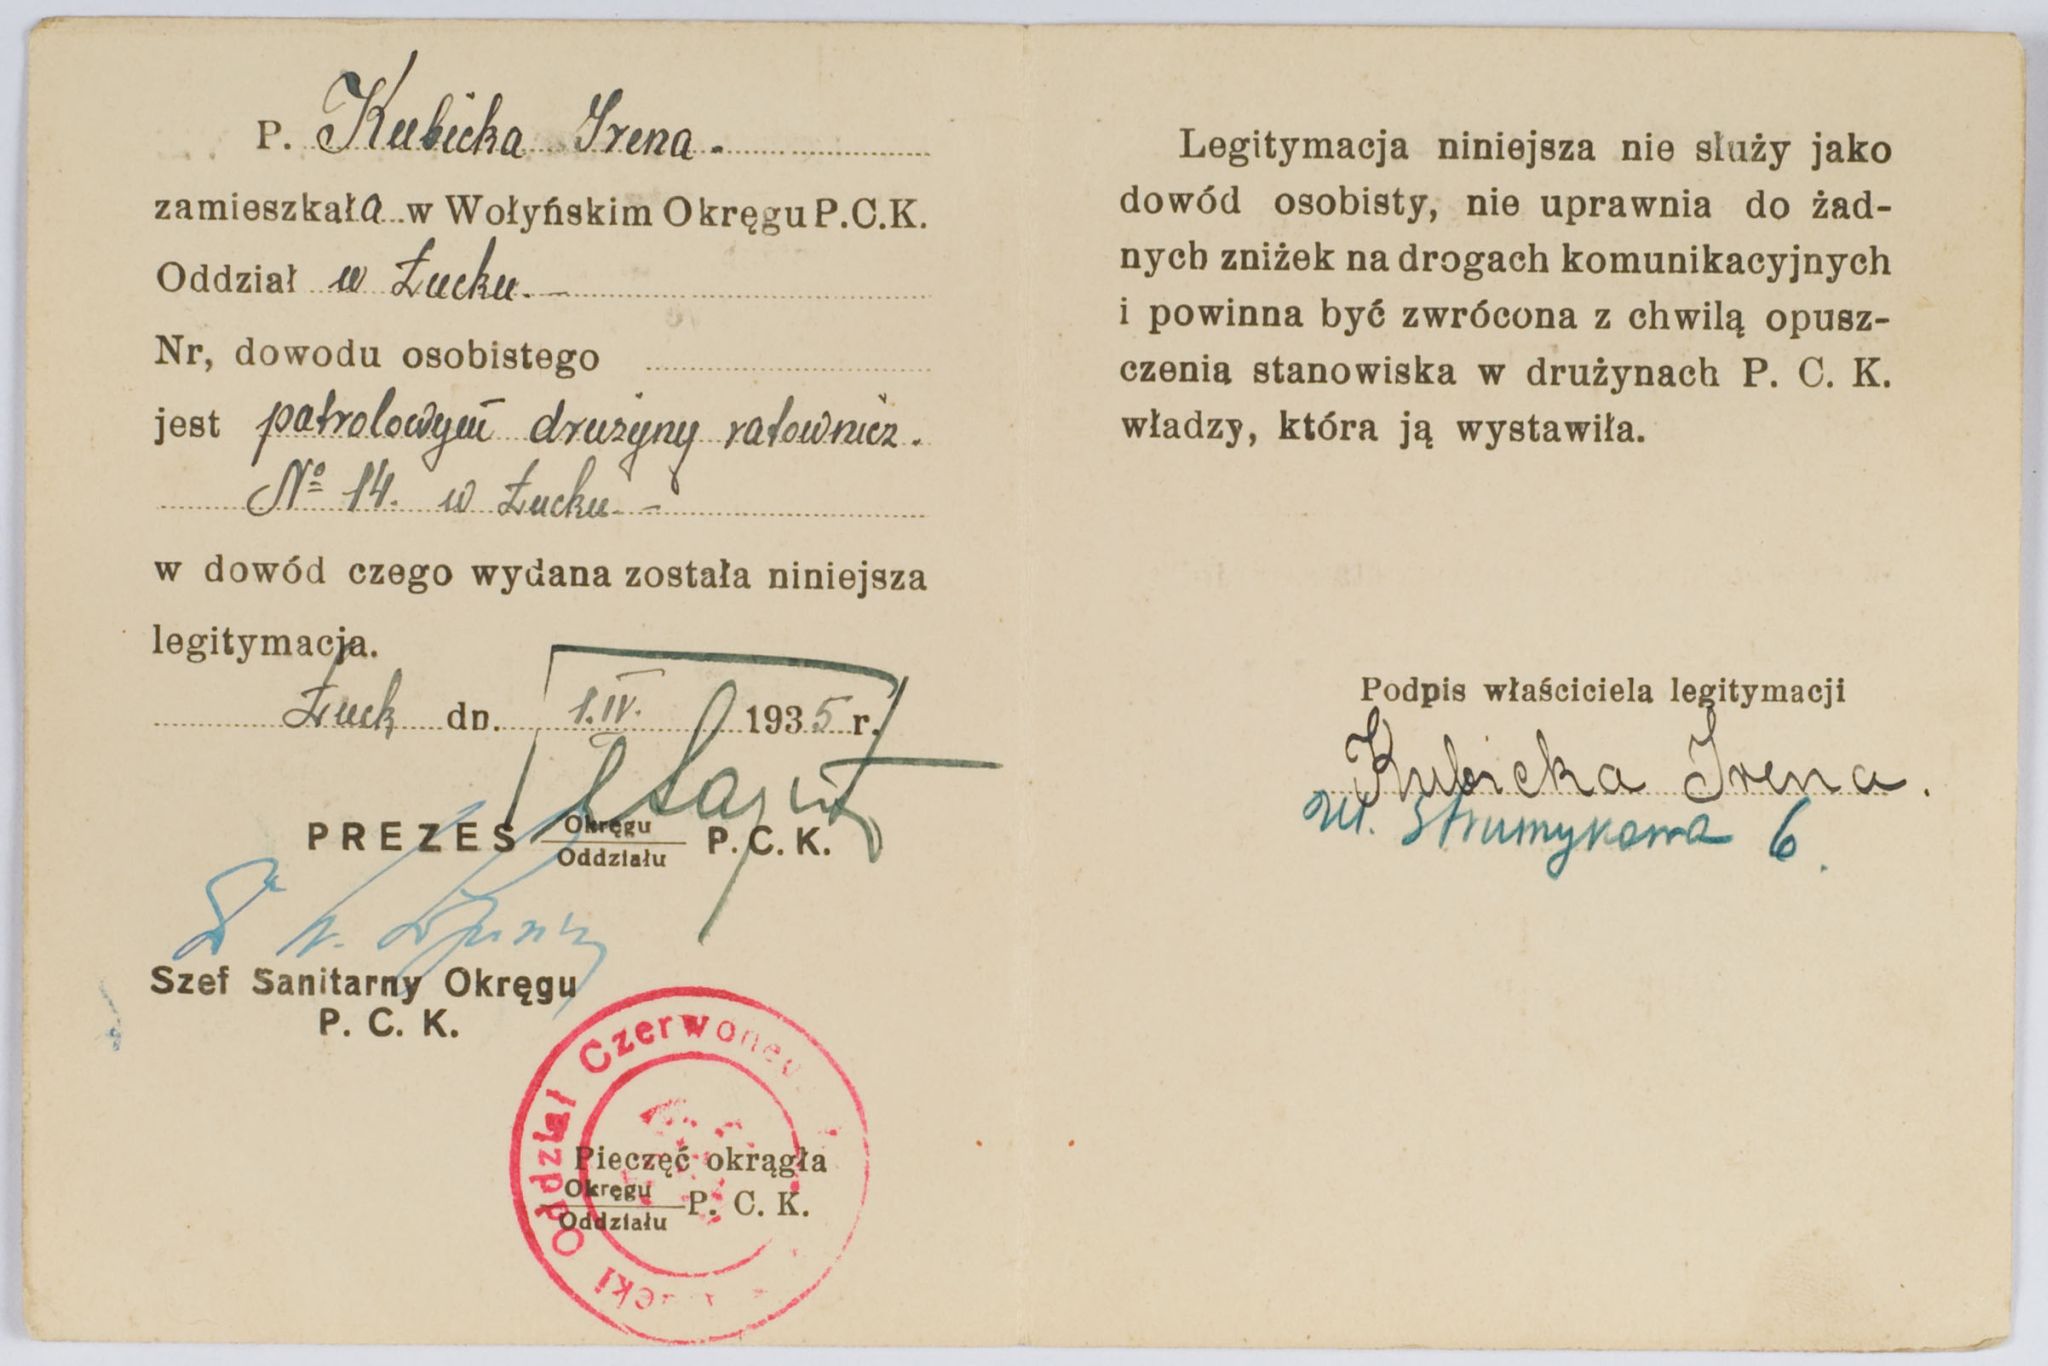 P. Kubicka Irena.
zamieszkała w Wołyńskim Okręgu P.C.K.
Oddział w Łucku.—
Nr, dowodu osobistego
jest patrolowym drużyny ratownicz.
№ 14. w Łucku.—
w dowód czego wydana została niniejsza
legitymacja.
Łuck dn. 1.IV. 1935 r.
PREZES Okręgu P.C.K.
Oddziału
Szef Sanitarny Okręgu
P. C. K.
Oddział Czerwone
Pieczęć okrągła
Okręgu P. C. K.
Oddziału
Legitymacja niniejsza nie służy jako
dowód osobisty, nie uprawnia do żad-
nych zniżek na drogach komunikacyjnych
i powinna być zwrócona z chwilą opusz-
czenia stanowiska w drużynach P. C. K.
władzy, która ją wystawiła.
Podpis właściciela legitymacji
Kubicka Irena.
ul. Strumykowa 6.